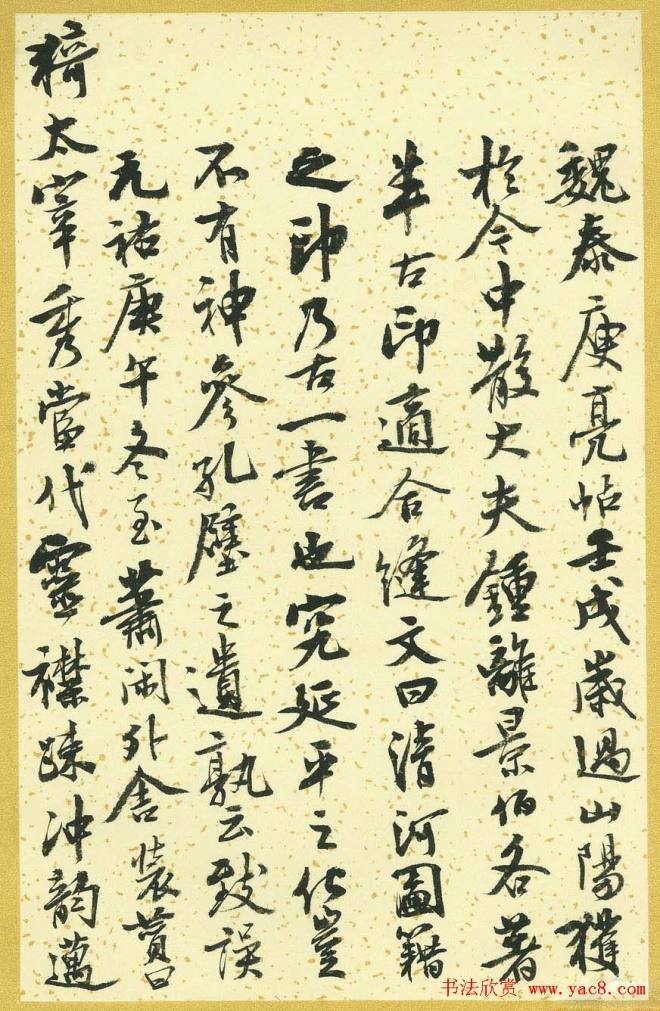 魏泰庾亮帖壬戌歲過山陽獲
於今中散大夫鍾離景伯各著
半古印適合縫文曰清河圖籍
之印乃古一書也究延平之化豈
不有神參孔壁之遺孰云致誤
元祐庚午冬至蕭閑外舍裝
猗太宰秀當代靈襟疎沖韵邁
书法欣赏 www.yac8.com